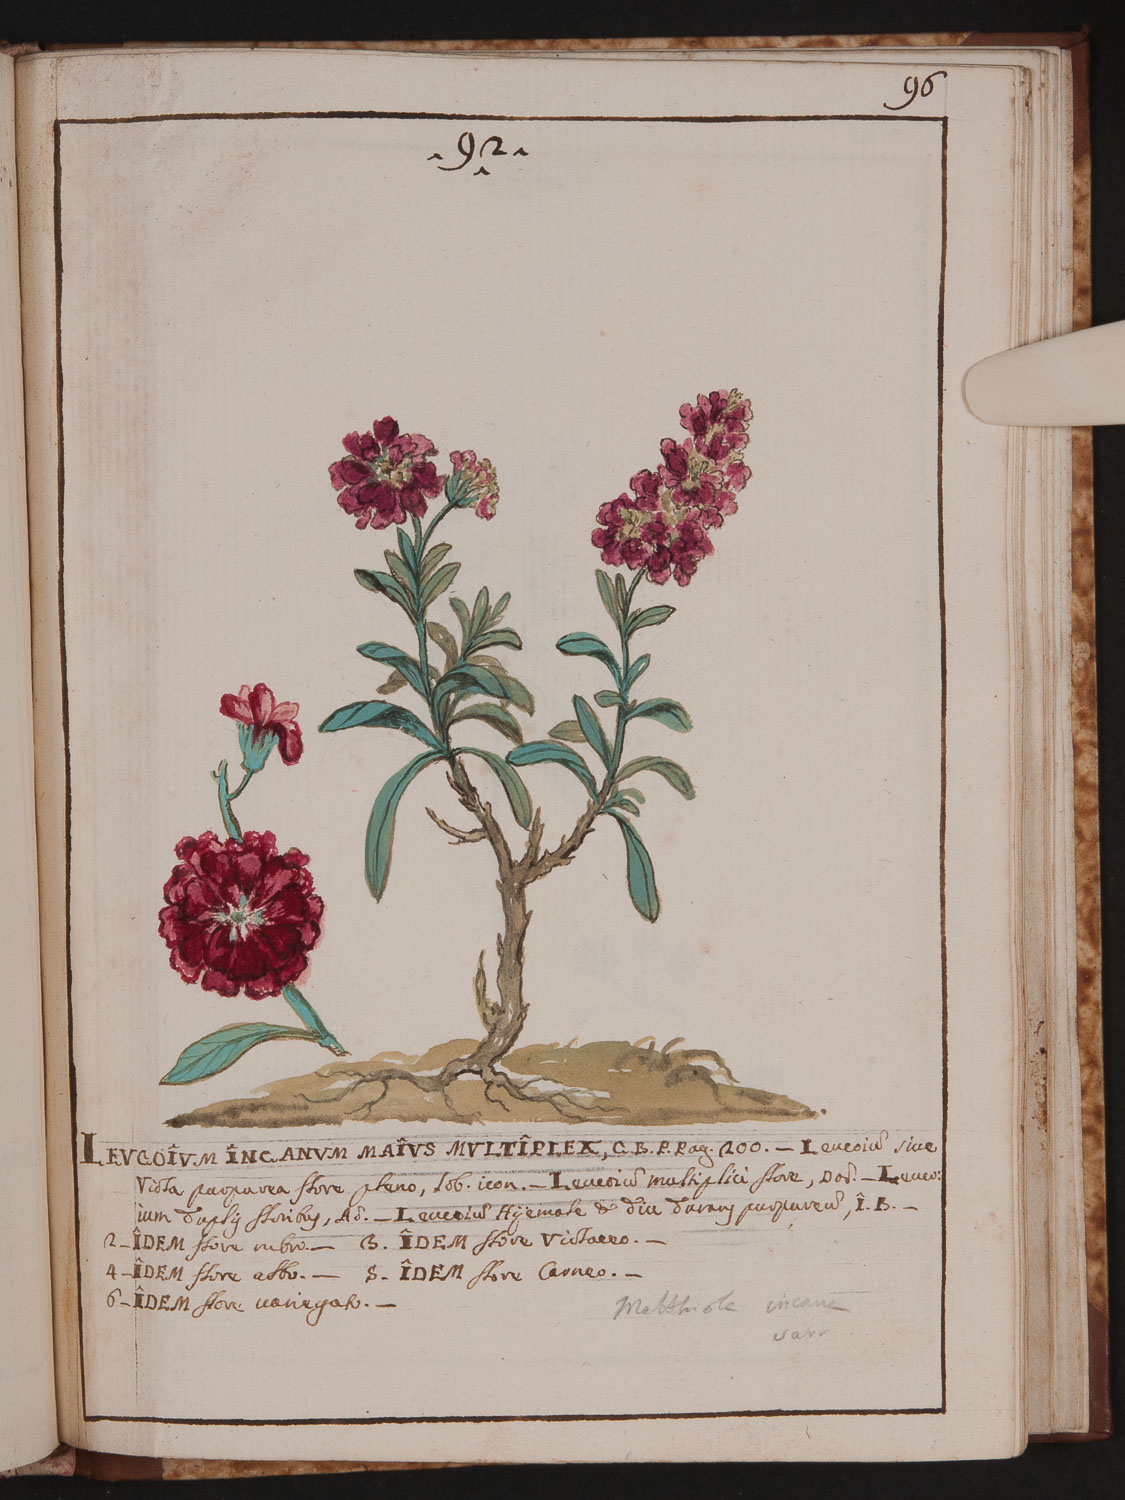 96
92
LEUCOÎVM ÎNCANVM MAÎVS MVLTÎPLEX, C. B. P. Pag. 200. — Leucoiū siue
Viola purpurea flore pleno, lob. icon. — Leucoiū multiplici flore, Dod. — Leuco:
ium duplỹ floribus, Ad. — Leucoiū Hyemale & diu durans purpureū, Î. B. —
2 — ÎDEM flore rubro. — 3. ÎDEM flore Violaceo. —
4 — ÎDEM flore albo. — 5. ÎDEM flore Carneo. —
6 — ÎDEM flore uariegato. —
Matthiola incana
varr